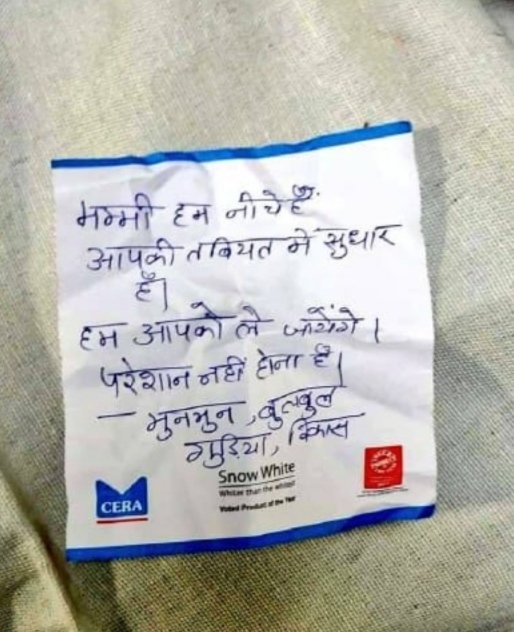 मम्मी हम नीचे हैं.
आपकी तबियत में सुधार
है।
हम आपको ले जायेंगे।
परेशान नहीं होना है।
— मुनमुन, बुलबुल
गुड़िया, विकास
CERA
Snow White
Whiter than the whitest
Voted Product of the Year